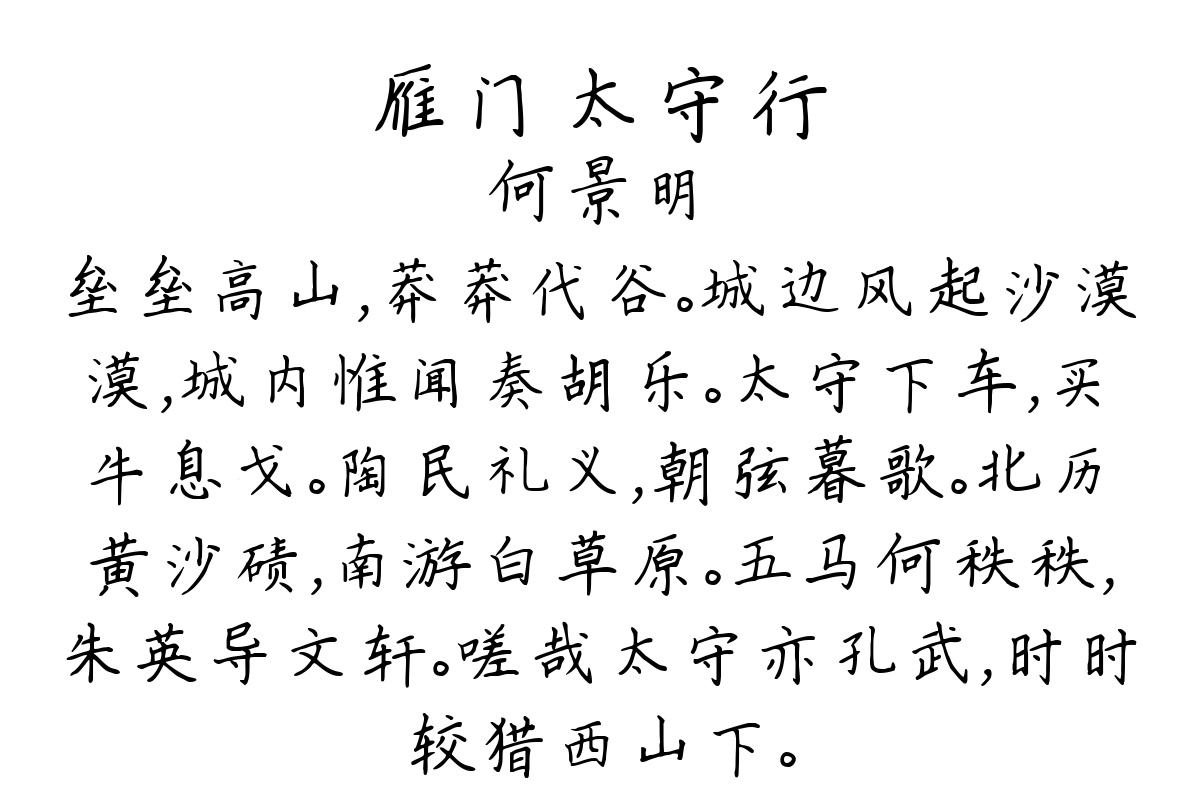 雁门太守行
何景明
垒垒高山,莽莽代谷。城边风起沙漠
漠,城内惟闻奏胡乐。太守下车,买
牛息戈。陶民礼义,朝弦暮歌。北历
黄沙碛,南游白草原。五马何秩秩,
朱英导文轩。嗟哉太守亦孔武,时时
较猎西山下。